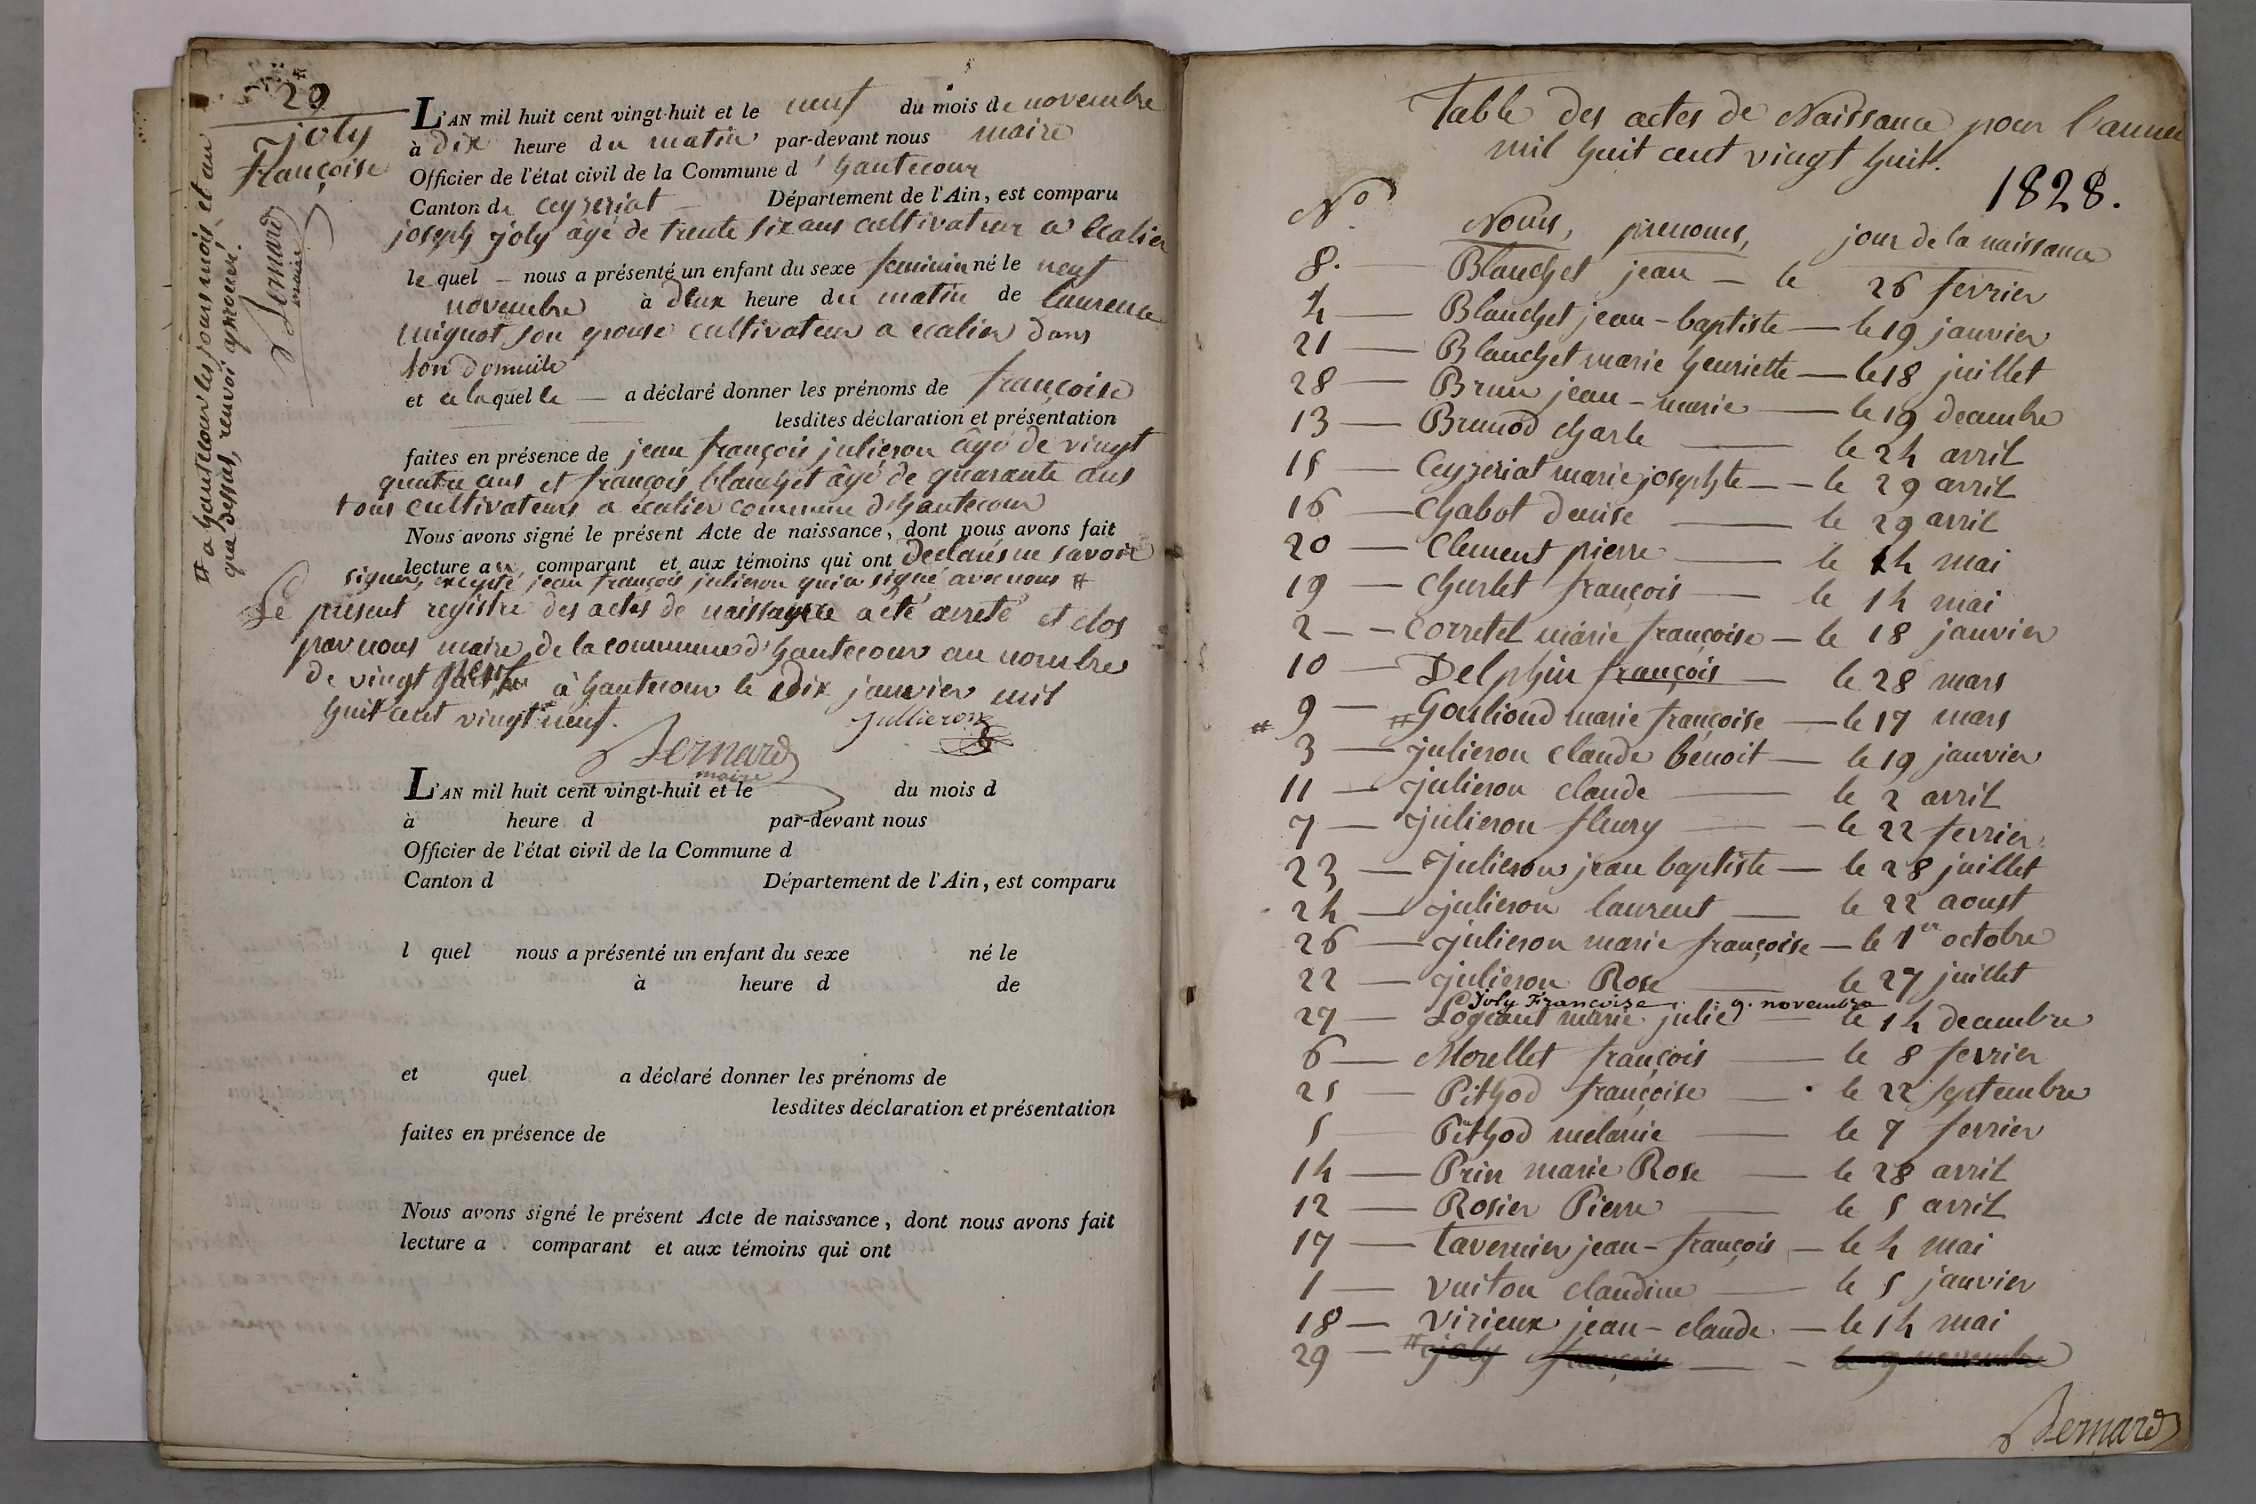 29
joly
françoise
Bernard
maire
# a hautecour les jours mois et an
que dessus, renvoi aprouvé.
L'AN mil huit cent vingt-huit et le neuf du mois de novembre
à dix heure du matin par-devant nous maire
Officier de l'état civil de la Commune d'hautecour
Canton de ceyzeriat Département de l'Ain, est comparu
joseph joly âgé de trente six ans cultivateur a ecalier
le quel nous a présenté un enfant du sexe feminin né le neuf
novembre à deux heure du matin de laurence
mignot son epouse cultivateur a ecalier dans
son domicile
et a laquelle a déclaré donner les prénoms de françoise
lesdites déclaration et présentation
faites en présence de jean françois julieron âgé de vingt
quatre ans et françois blanchet âgé de quarante ans
tous cultivateurs a écalier commune d'hautecour
Nous avons signé le présent Acte de naissance, dont nous avons fait
lecture au comparant et aux témoins qui ont declarés ne savoir
signer, excepté jean françois julieron qui a signé avec nous #
Le present registre des actes de naissance a été arreté et clos
par nous maire de la commune d'hautecour au nombre
de vingt neuf à hautecour le dix janvier mil
huit cent vingt neuf.
Jullieron
Bernard
maire
L'AN mil huit cent vingt-huit et le du mois d
à heure d par-devant nous
Officier de l'état civil de la Commune d
Canton d Département de l'Ain, est comparu
l quel nous a présenté un enfant du sexe né le
à heure d de
et quel a déclaré donner les prénoms de
lesdites déclaration et présentation
faites en présence de
Nous avons signé le présent Acte de naissance, dont nous avons fait
lecture a comparant et aux témoins qui ont
Table des actes de Naissance pour l'année
mil huit cent vingt huit.
1828.
No Noms, prenoms, jour de la naissance
8. Blanchet jean — le 26 fevrier
4 — Blanchet jean-baptiste — le 19 janvier
21 — Blanchet marie henriette — le 18 juillet
28 — Brun jean-marie — le 19 decembre
13 — Brunod charle — le 24 avril
15 — Ceyzeriat marie josephte — le 29 avril
16 — Chabot denise — le 29 avril
20 — Clement pierre — le 14 mai
19 — Churlet françois — le 14 mai
2 — Corretel marie françoise — le 18 janvier
10 — Delphin françois — le 28 mars
# 9 — # Goulioud marie françoise — le 17 mars
3 — julieron claude benoit — le 19 janvier
11 — julieron claude — le 2 avril
7 — julieron fleury — le 22 fevrier
23 — julieron jean baptiste — le 28 juillet
24 — julieron laurent — le 22 aoust
26 — julieron marie françoise — le 1er octobre
22 — julieron Rose — le 27 juillet
Joly Françoise 9. novembre
27 — Logeant marie julie — le 14 decembre
6 — Morellet françois — le 8 fevrier
25 — Pithod françoise — le 22 septembre
5 — Pithod melanie — le 7 fevrier
14 — Prin marie Rose — le 28 avril
12 — Rosier Pierre — le 5 avril
17 — Tavernier jean-françois — le 4 mai
1 — Vuiton claudine — le 5 janvier
18 — Virieux jean-claude — le 14 mai
29 — # joly françoise — le 9 novembre
Bernard